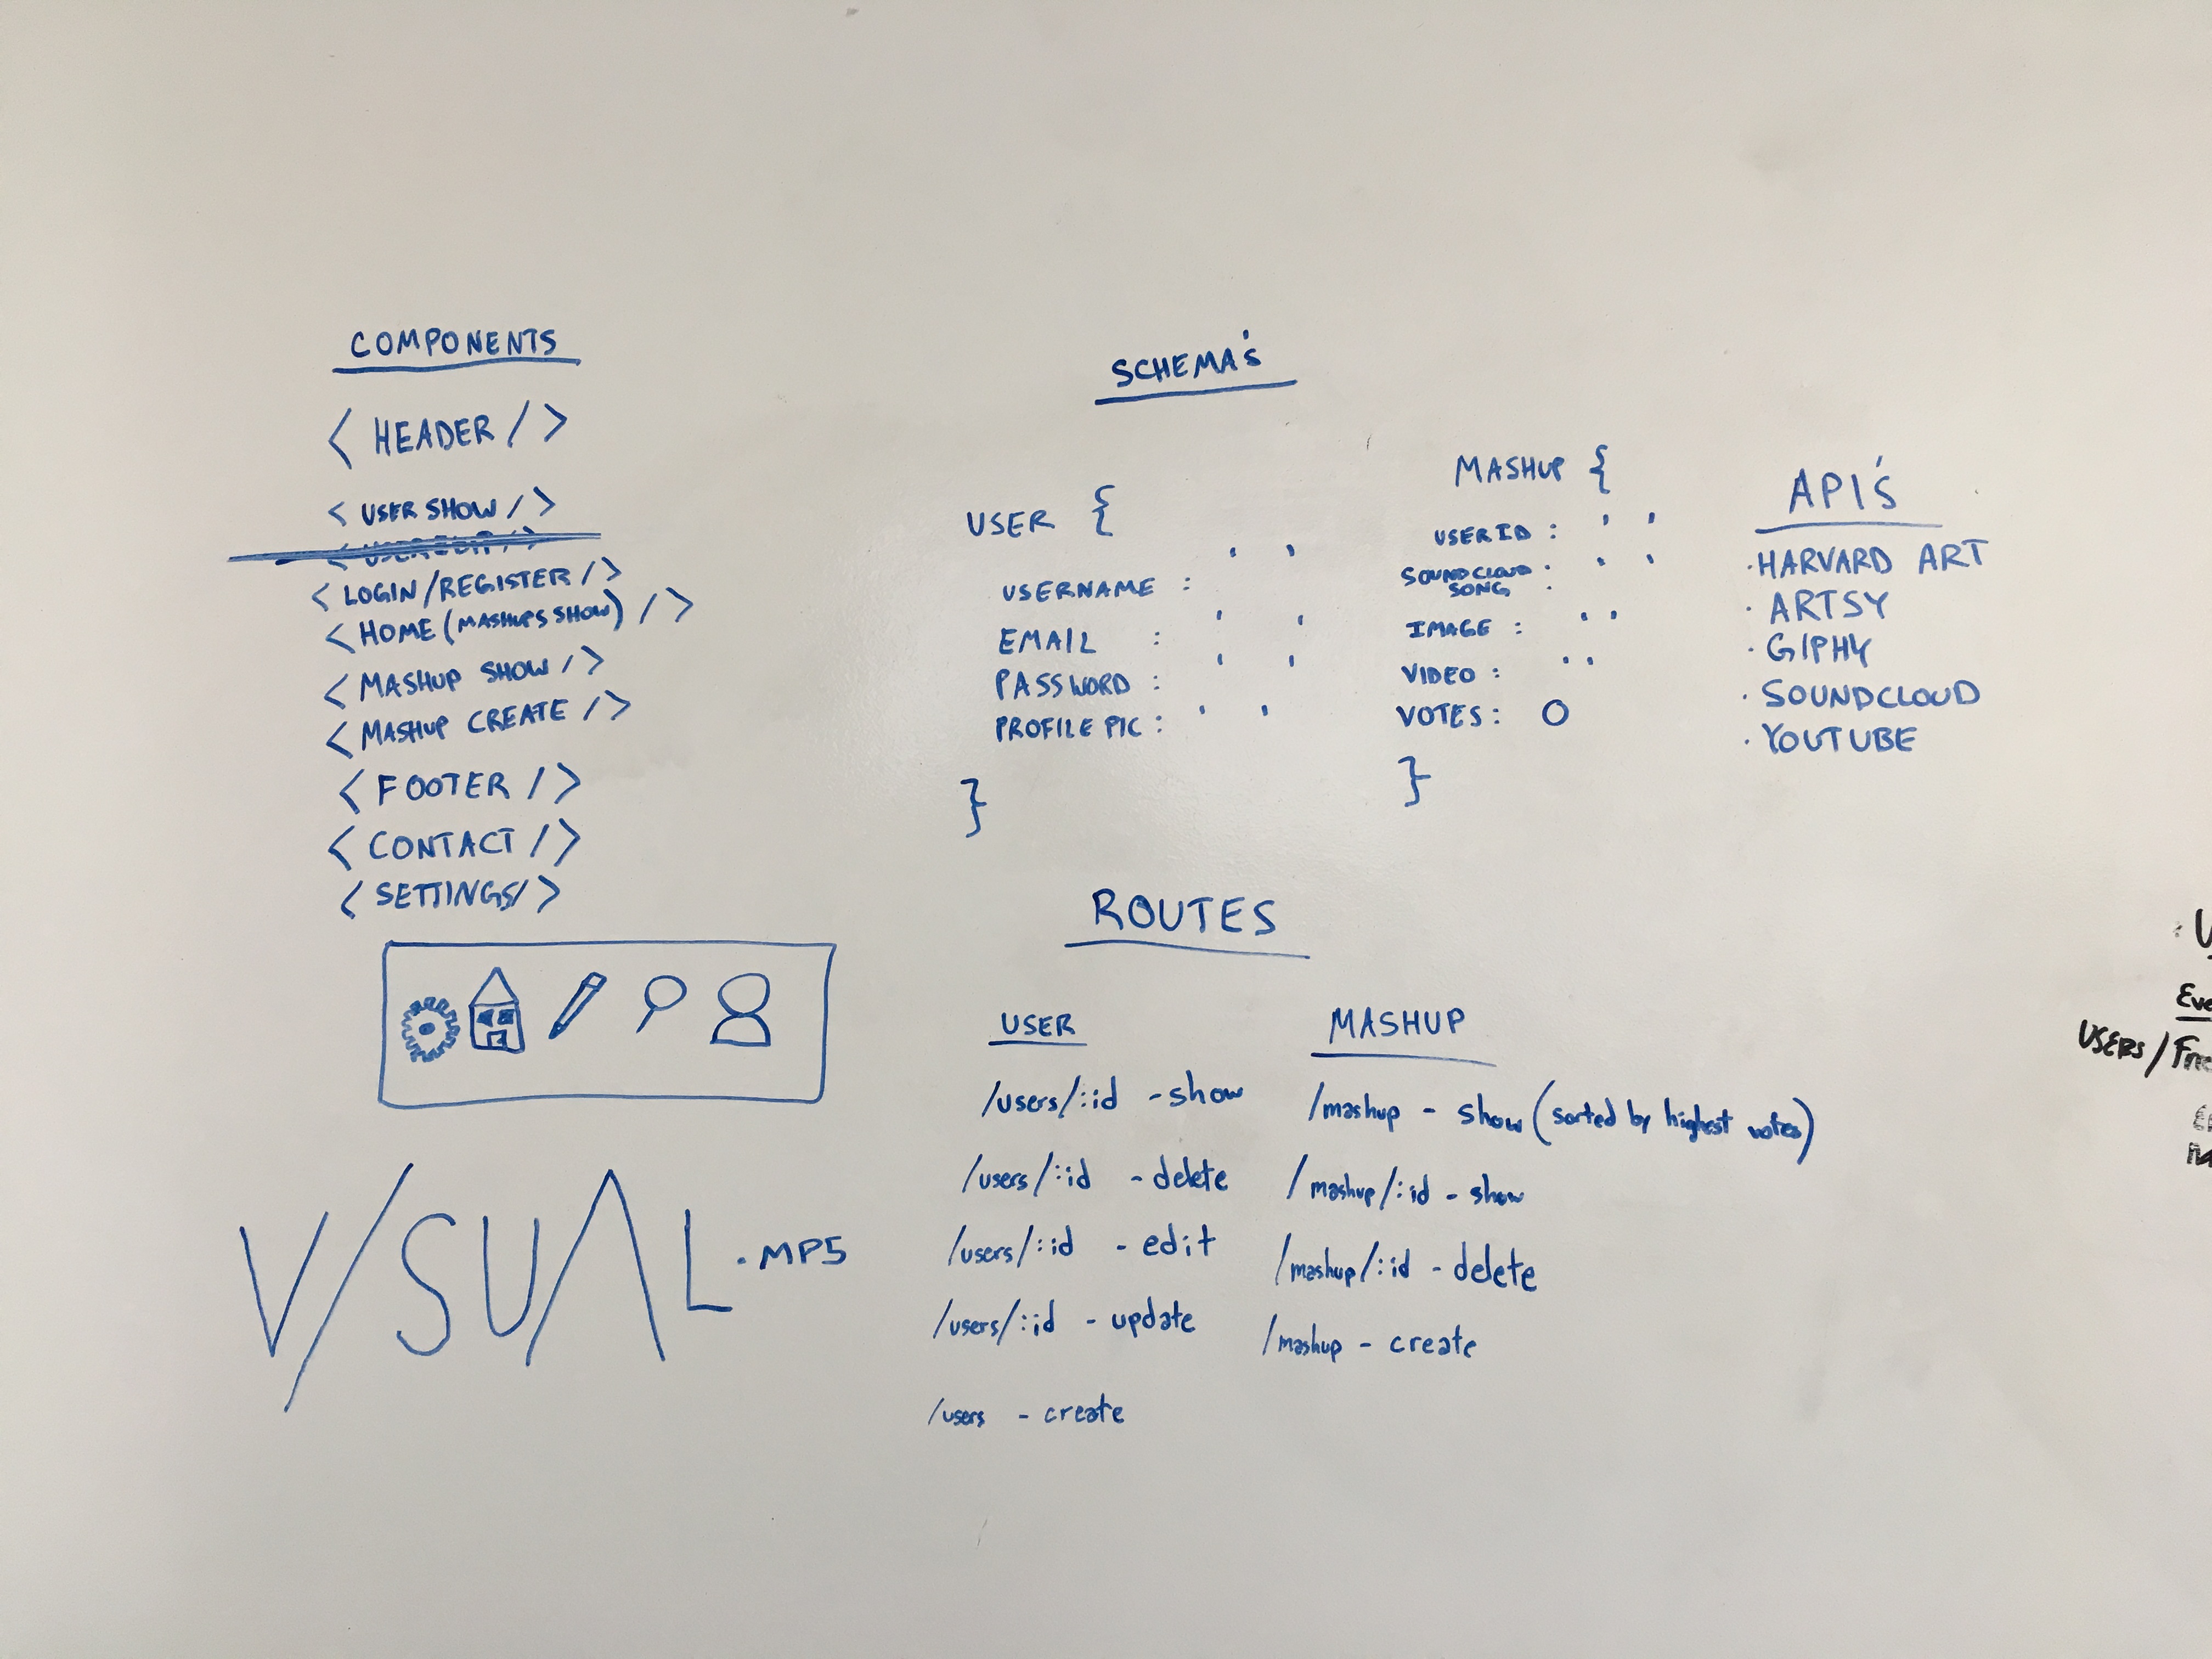 COMPONENTS
< HEADER / >
< USER SHOW / >
< USER EDIT / >
< LOGIN/REGISTER / >
< HOME (MASHUPS SHOW) / >
< MASHUP SHOW / >
< MASHUP CREATE / >
< FOOTER / >
< CONTACT / >
< SETTINGS/ >
V/SUAL.MP5
SCHEMA'S
USER {
USERNAME : ' '
EMAIL : ' '
PASSWORD : ' '
PROFILE PIC : ' '
}
MASHUP {
USER ID : ' '
SOUNDCLOUD : ' '
SONG
IMAGE : ' '
VIDEO : ' '
VOTES : 0
}
API'S
· HARVARD ART
· ARTSY
· GIPHY
· SOUNDCLOUD
· YOUTUBE
ROUTES
USER
/users/:id - show
/users/:id - delete
/users/:id - edit
/users/:id - update
/users - create
MASHUP
/mashup - show (sorted by highest votes)
/mashup/:id - show
/mashup/:id - delete
/mashup - create
USERS/